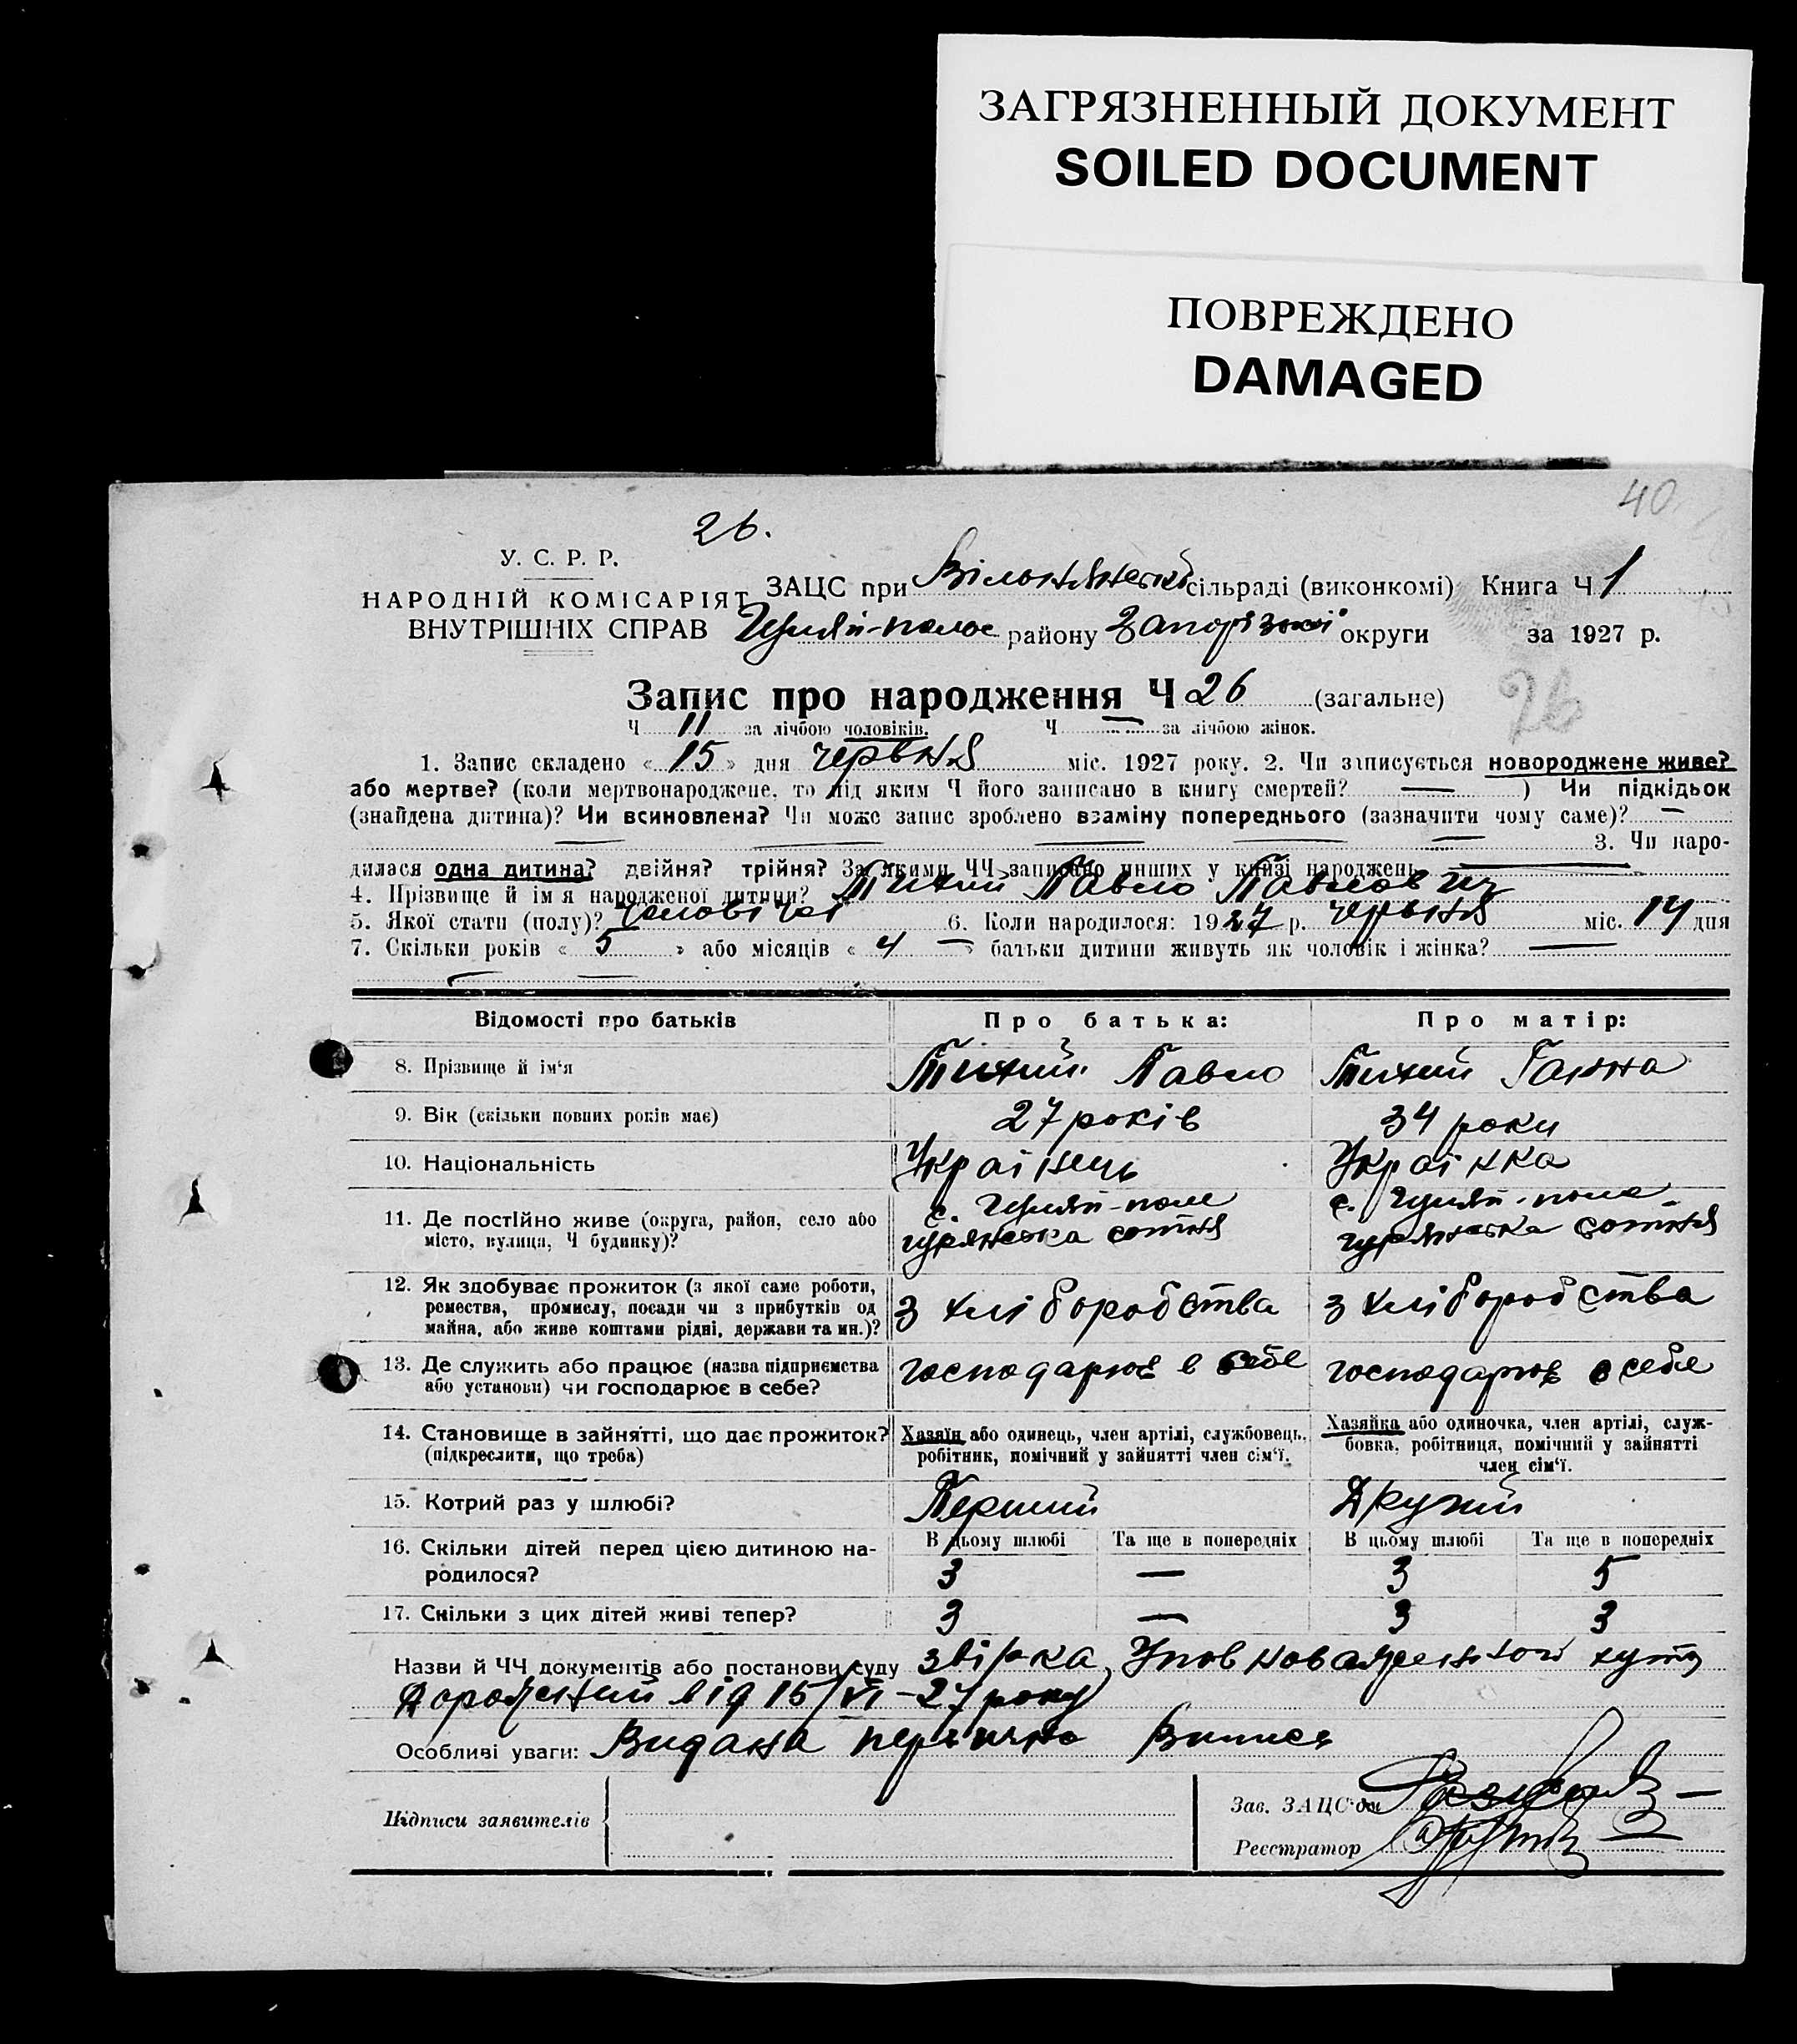 ЗАГРЯЗНЕННЫЙ ДОКУМЕНТ
SOILED DOCUMENT
ПОВРЕЖДЕНО
DAMAGED
40
26.
У. С. Р. Р.
НАРОДНІЙ КОМІСАРІЯТ
ВНУТРІШНІХ СПРАВ
ЗАЦС при сільраді (виконкомі) Книга Ч 1
Гуляй-поле району Запорізької округи за 1927 р.
Запис про народження Ч 26 (загальне)
26
Ч 11 за лічбою чоловіків. Ч — за лічбою жінок.
1. Запис складено «15» дня червня міс. 1927 року. 2. Чи записується новороджене живе?
або мертве? (коли мертвонароджене, то під яким Ч його записано в книгу смертей? — ) Чи підкідьок
(знайдена дитина)? Чи всиновлена? Чи може запис зроблено взаміну попереднього (зазначити чому саме)? —
— — — — 3. Чи наро-
дилася одна дитина? двійня? трійня? За якими ЧЧ записано инших у книзі народжень —
4. Прізвище й ім'я народженої дитини? Тихий Павло Павлович
5. Якої стати (полу)? чоловічої 6. Коли народилося: 1927 р. червня міс. 14 дня
7. Скільки років « 5 » або місяців « 4 — » батьки дитини живуть як чоловік і жінка? —
Відомості про батьків Про батька: Про матір:
8. Прізвище й ім'я Тихий Павло Тихий Ганна
9. Вік (скільки повних років має) 27 років 34 роки
10. Національність Українець Українка
11. Де постійно живе (округа, район, село або місто, вулиця, Ч будинку)?
с. Гуляй-поле
гурянська сотня
с. Гуляй-поле
гурянська сотня
12. Як здобуває прожиток (з якої саме роботи,
ремества, промислу, посади чи з прибутків од
майна, або живе коштами рідні, держави та ин.)?
з хліборобства з хліборобства
13. Де служить або працює (назва підприємства
або установи) чи господарює в себе?
господарює в себе господарює в себе
14. Становище в зайнятті, що дає прожиток?
(підкреслити, що треба)
Хазяїн або одинець, член артілі, службовець,
робітник, помічний у зайнятті член сім'ї.
Хазяйка або одиночка, член артілі, служ-
бовка, робітниця, помічний у зайнятті
член сім'ї.
15. Котрий раз у шлюбі? Перший Другий
16. Скільки дітей перед цією дитиною на-
родилося?
В цьому шлюбі Та ще в попередніх В цьому шлюбі Та ще в попередніх
3 — 3 5
17. Скільки з цих дітей живі тепер? 3 — 3 3
Назви й ЧЧ документів або постанови суду
від 15/VI-27 року
Особливі уваги: Видана первична Випись
Підписи заявителів
Зав. ЗАЦС'ом
Реєстратор